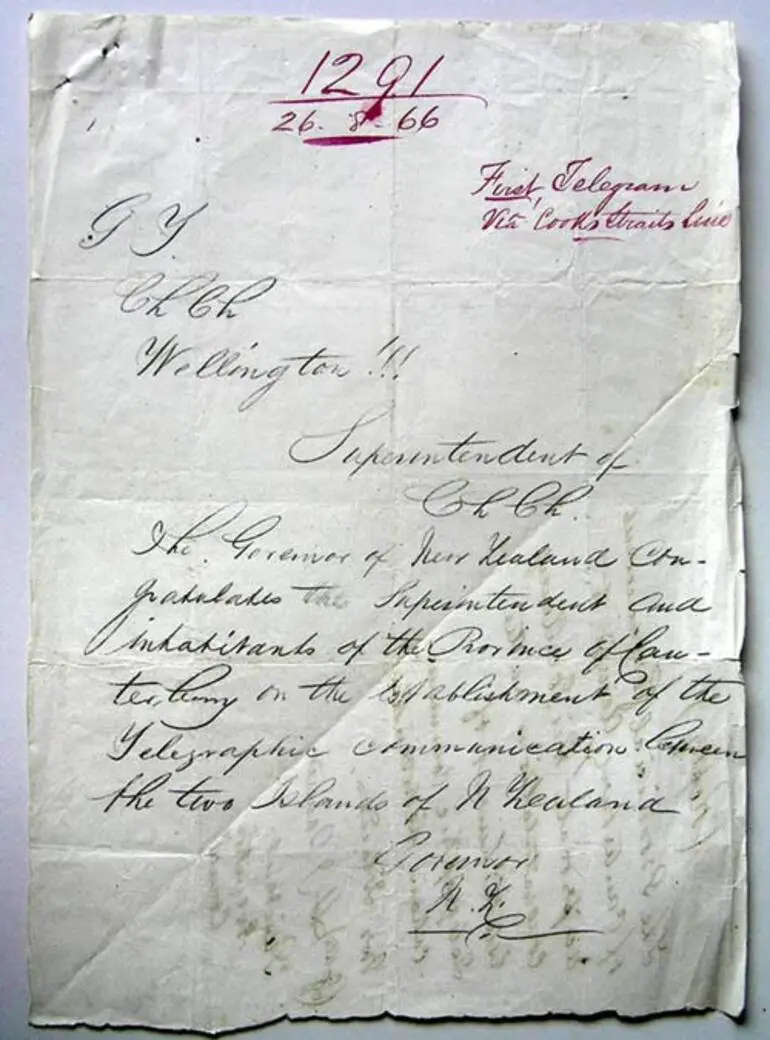 1291
26-8-66
First Telegram
Via Cooks Straits Line
G Y.
Ch Ch
Wellington !!!
Superintendent of
Ch Ch.
The Governor of New Zealand con-
gratulates the Superintendent and
inhabitants of the Province of Can-
terbury on the establishment of the
Telegraphic communication between
the two Islands of N Zealand
Governor
N.Z.